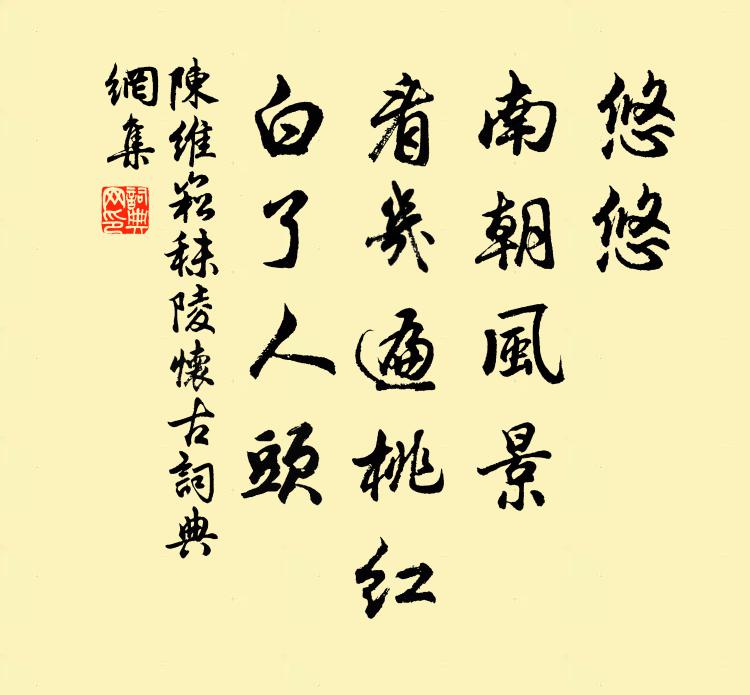 悠悠
南朝風景
看幾遍桃紅
白了人頭
陳維崧秣陵懷古詞典
網集
詞典
網印